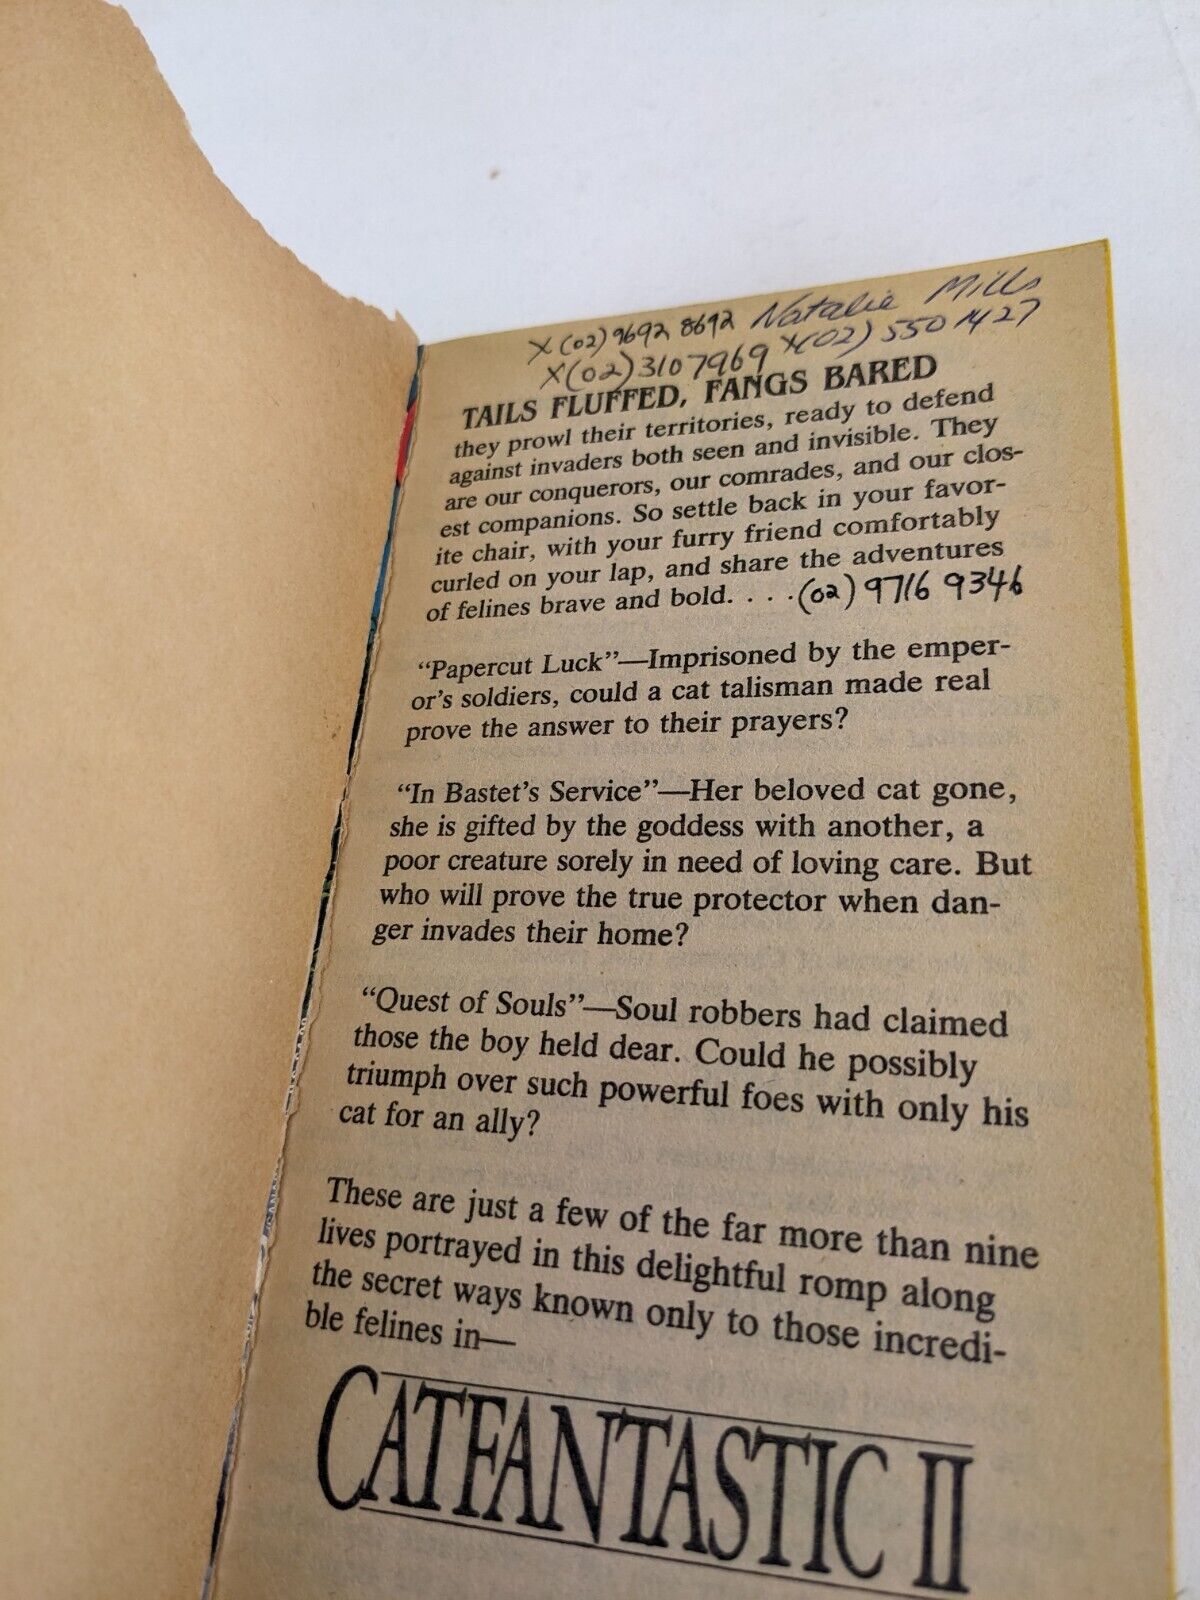 Natalie Mills
x (02) 9692 8692
x (02) 550 1427
x (02) 310 7969
TAILS FLUFFED, FANGS BARED
they prowl their territories, ready to defend
against invaders both seen and invisible. They
are our conquerors, our comrades, and our clos-
est companions. So settle back in your favor-
ite chair, with your furry friend comfortably
curled on your lap, and share the adventures
of felines brave and bold. . . . (02) 9716 9346
“Papercut Luck”—Imprisoned by the emper-
or's soldiers, could a cat talisman made real
prove the answer to their prayers?
“In Bastet's Service”—Her beloved cat gone,
she is gifted by the goddess with another, a
poor creature sorely in need of loving care. But
who will prove the true protector when dan-
ger invades their home?
“Quest of Souls”—Soul robbers had claimed
those the boy held dear. Could he possibly
triumph over such powerful foes with only his
cat for an ally?
These are just a few of the far more than nine
lives portrayed in this delightful romp along
the secret ways known only to those incredi-
ble felines in—
CATFANTASTIC II